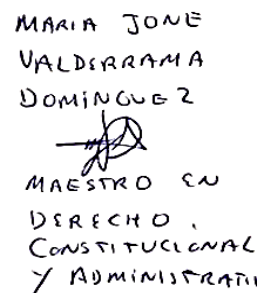 MARIA JONE
VALDERRAMA
DOMÍNGUEZ
MAESTRO EN
DERECHO.
CONSTITUCIONAL
Y ADMINISTRATI